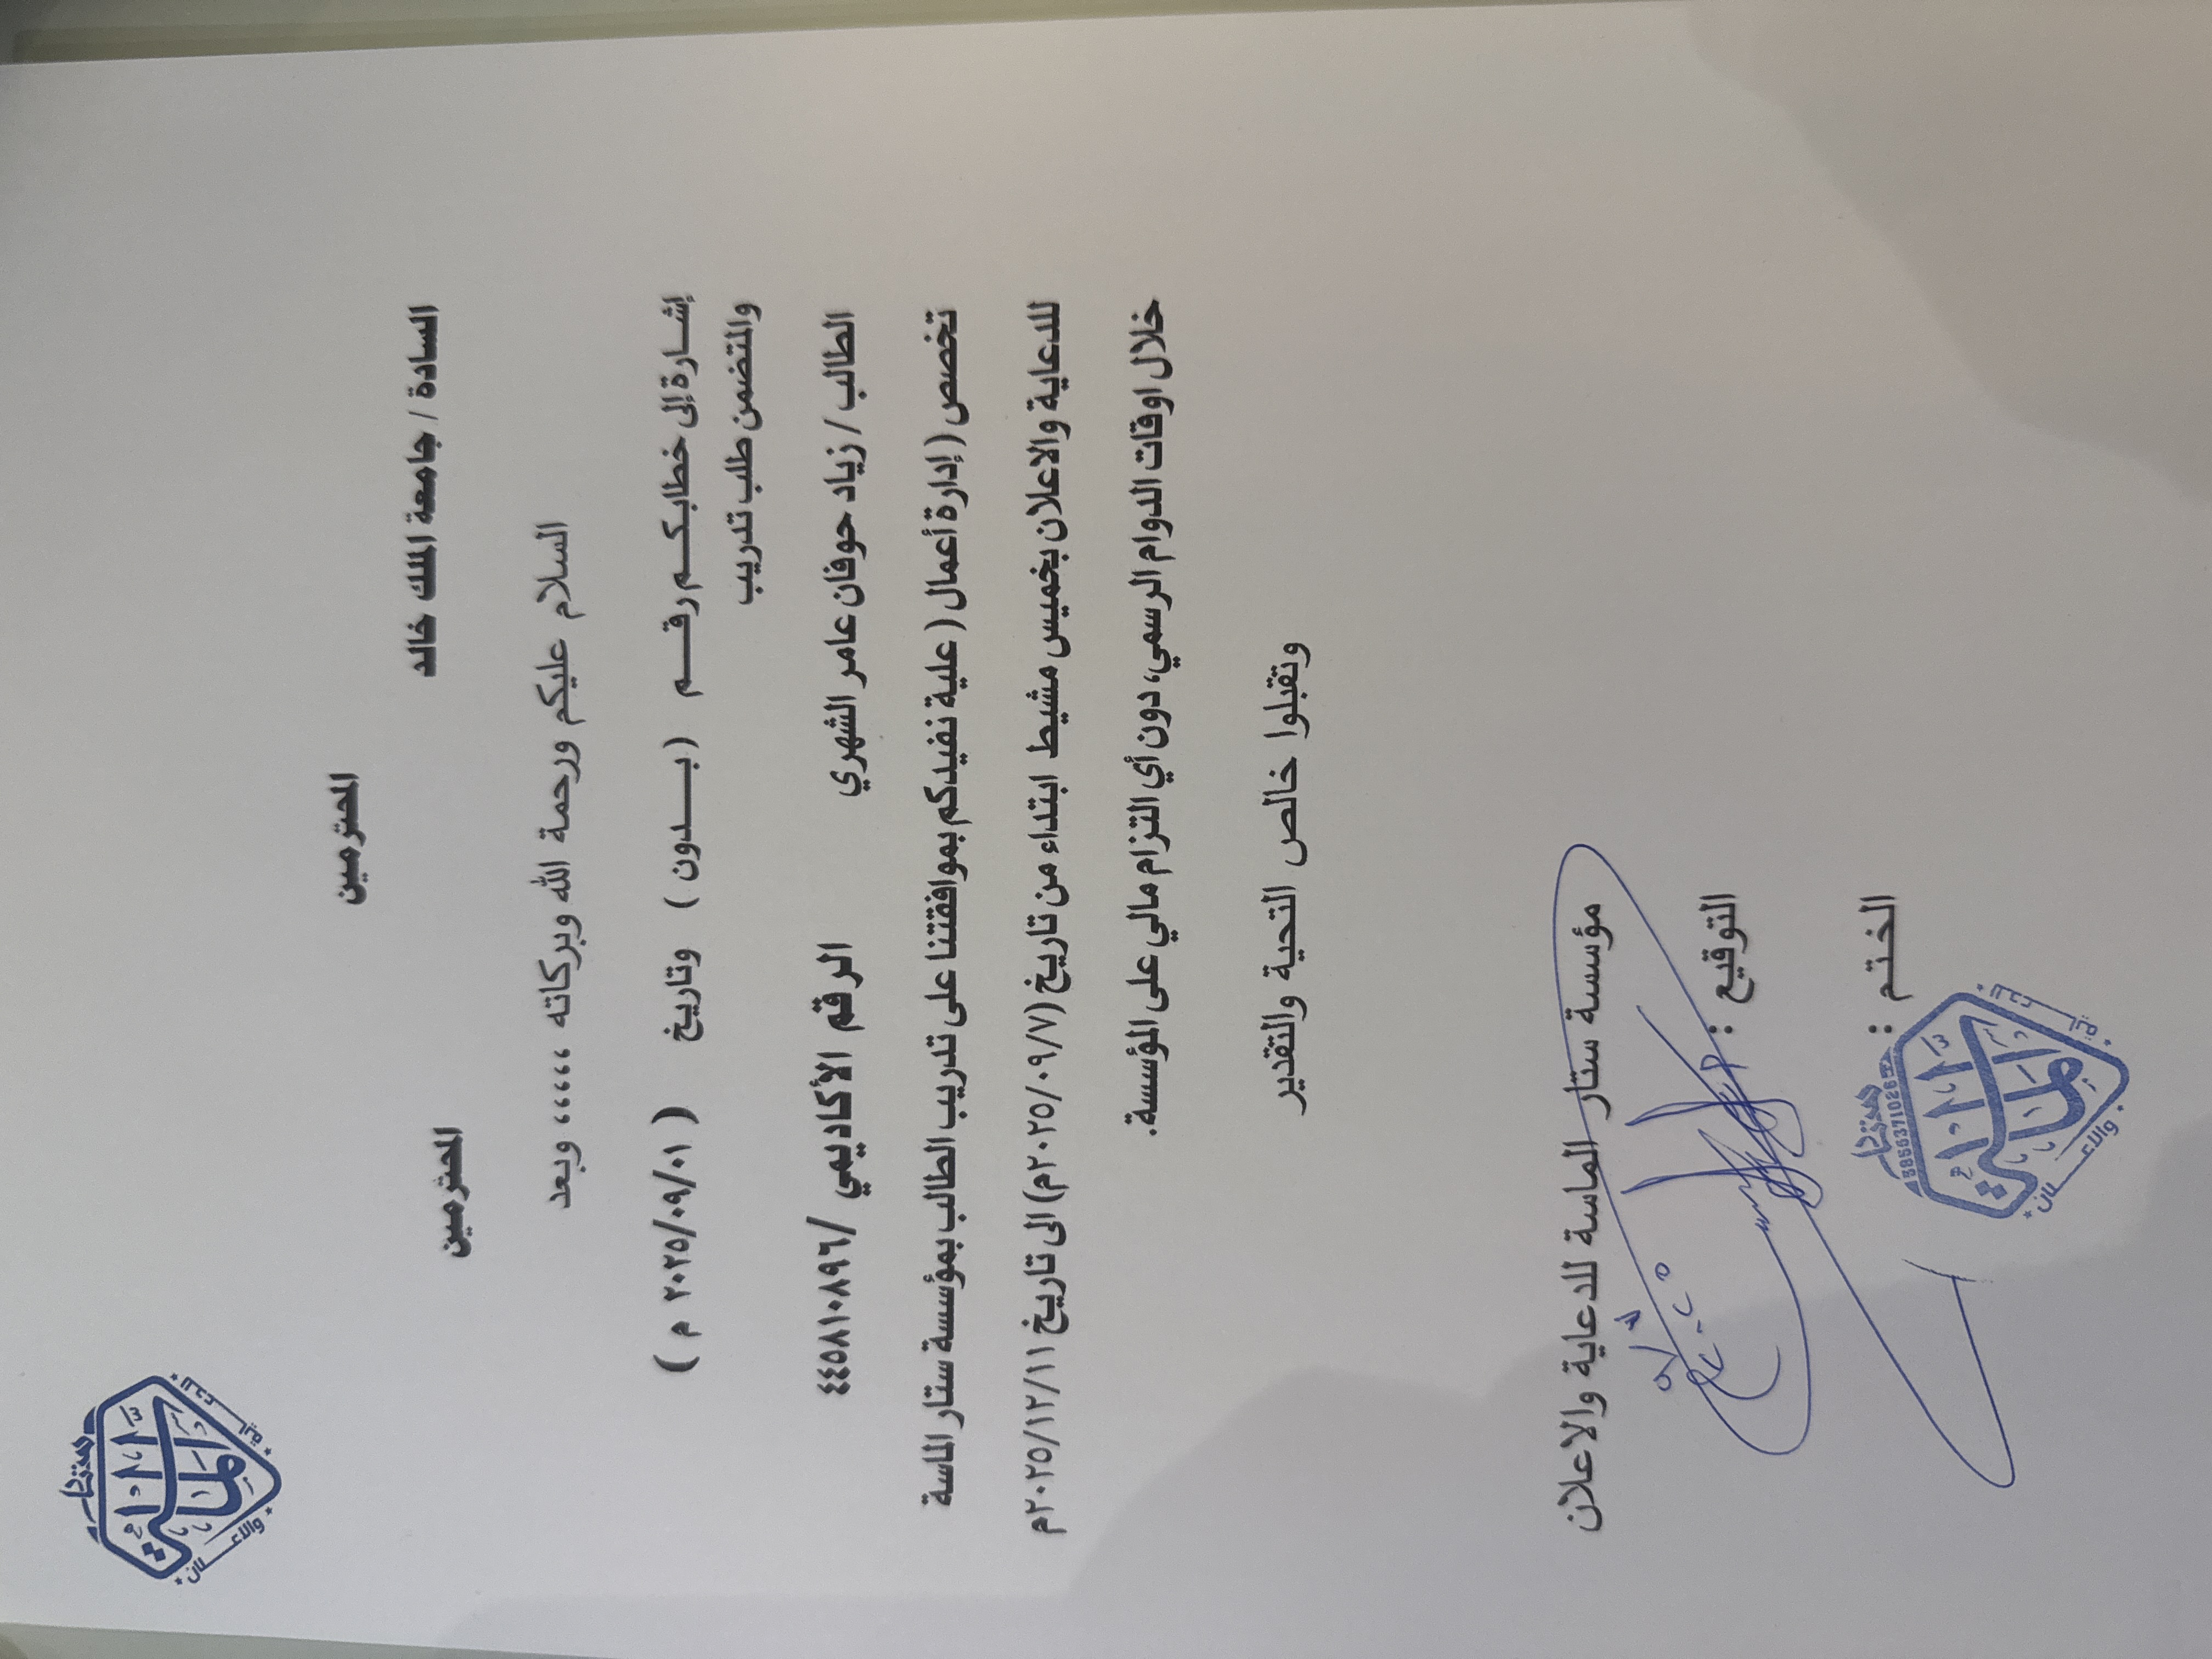 ستار
الماسة
للدعاية
والاعلان
المحترمين
السادة / جامعة الملك خالد
المحترمين
السلام عليكم ورحمة الله وبركاته ،،،،،، وبعد
إشـارة إلى خطابكـم رقـم (بـدون) وتاريخ ( ٢٠٢٥/٠٩/٠١ م )
والمتضمن طلب تدريب
الطالب / زياد حوفان عامر الشهري الرقم الأكاديمي /٤٤٥٨١٠٨٩٦
تخصص ( إدارة أعمال ( علية نفيدكم بموافقتنا على تدريب الطالب بمؤسسة ستار الماسة
للدعاية والاعلان بخميس مشيط ابتداء من تاريخ (٢٠٢٥/٠٩/٧م) الى تاريخ ٢٠٢٥/١٢/١١م
خلال اوقات الدوام الرسمي، دون أي التزام مالي على المؤسسة.
وتقبلوا خالص التحية والتقدير
مؤسسة ستار الماسة للدعاية والاعلان
التوقيع :
الختم :
ستار
الماسة
والاعلان